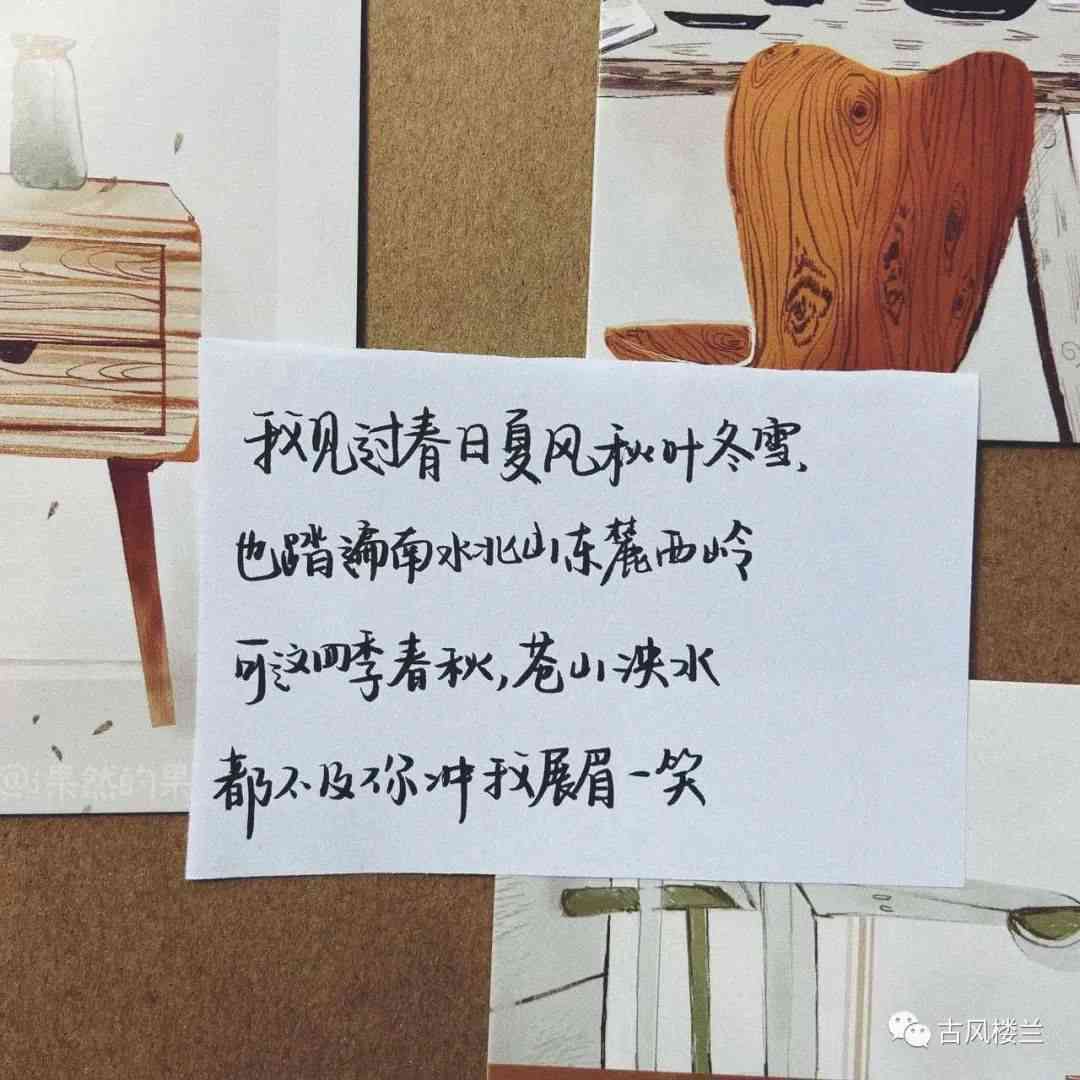 我见过春日夏风秋叶冬雪、
也踏遍南水北山东麓西岭
可这四季春秋,苍山泱水
都不及你冲我展眉一笑
@i果然的果
古风楼兰